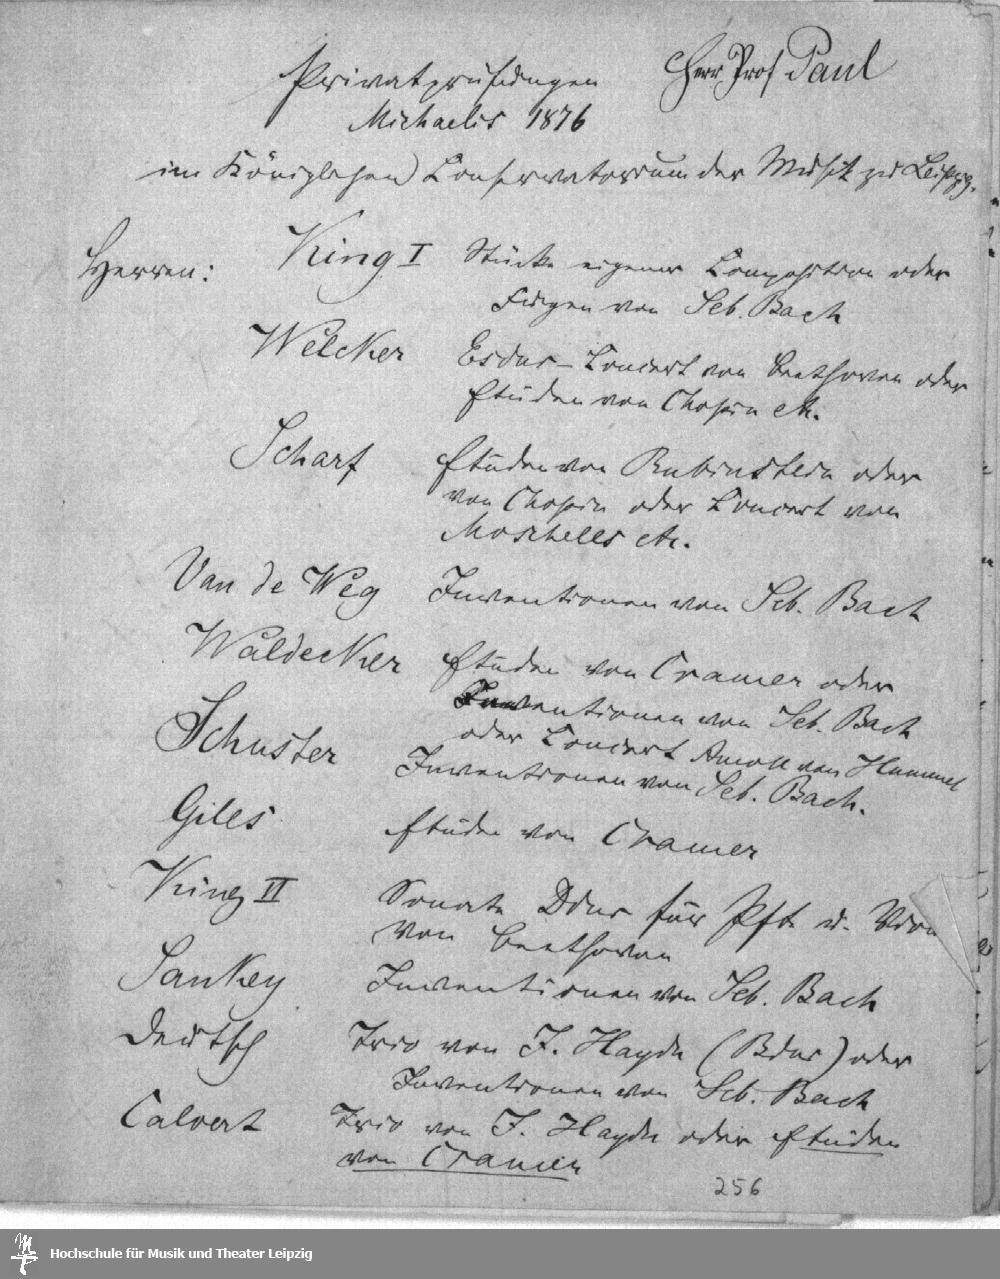 Privatprüfungen Herr Prof Paul
Michaelis 1876
im Königlichen Conservatorium der Musik zu Leipzig.
Herren: King I Stücke eigener Composition oder
Fugen von Seb. Bach
Welcker Esdur-Concert von Beethoven oder
Etüden von Chopin etc.
Scharf Etüden von Rubinstein oder
von Chopin oder Concert von
Moscheles etc.
Van de Weg Inventionen von Seb. Bach
Waldecker Etüden von Cramer oder
Inventionen von Seb. Bach
oder Concert Amoll von Hummel
Schuster Inventionen von Seb. Bach.
Giles Etüden von Cramer
King II Sonate Ddur für Pfte u. Viol
von Beethoven
Sankey Inventionen von Seb. Bach
Deutsch Trio von J. Haydn (Bdur) oder
Inventionen von Seb. Bach
Calvert Trio von J. Haydn oder Etüden
von Cramer
256
Hochschule für Musik und Theater Leipzig